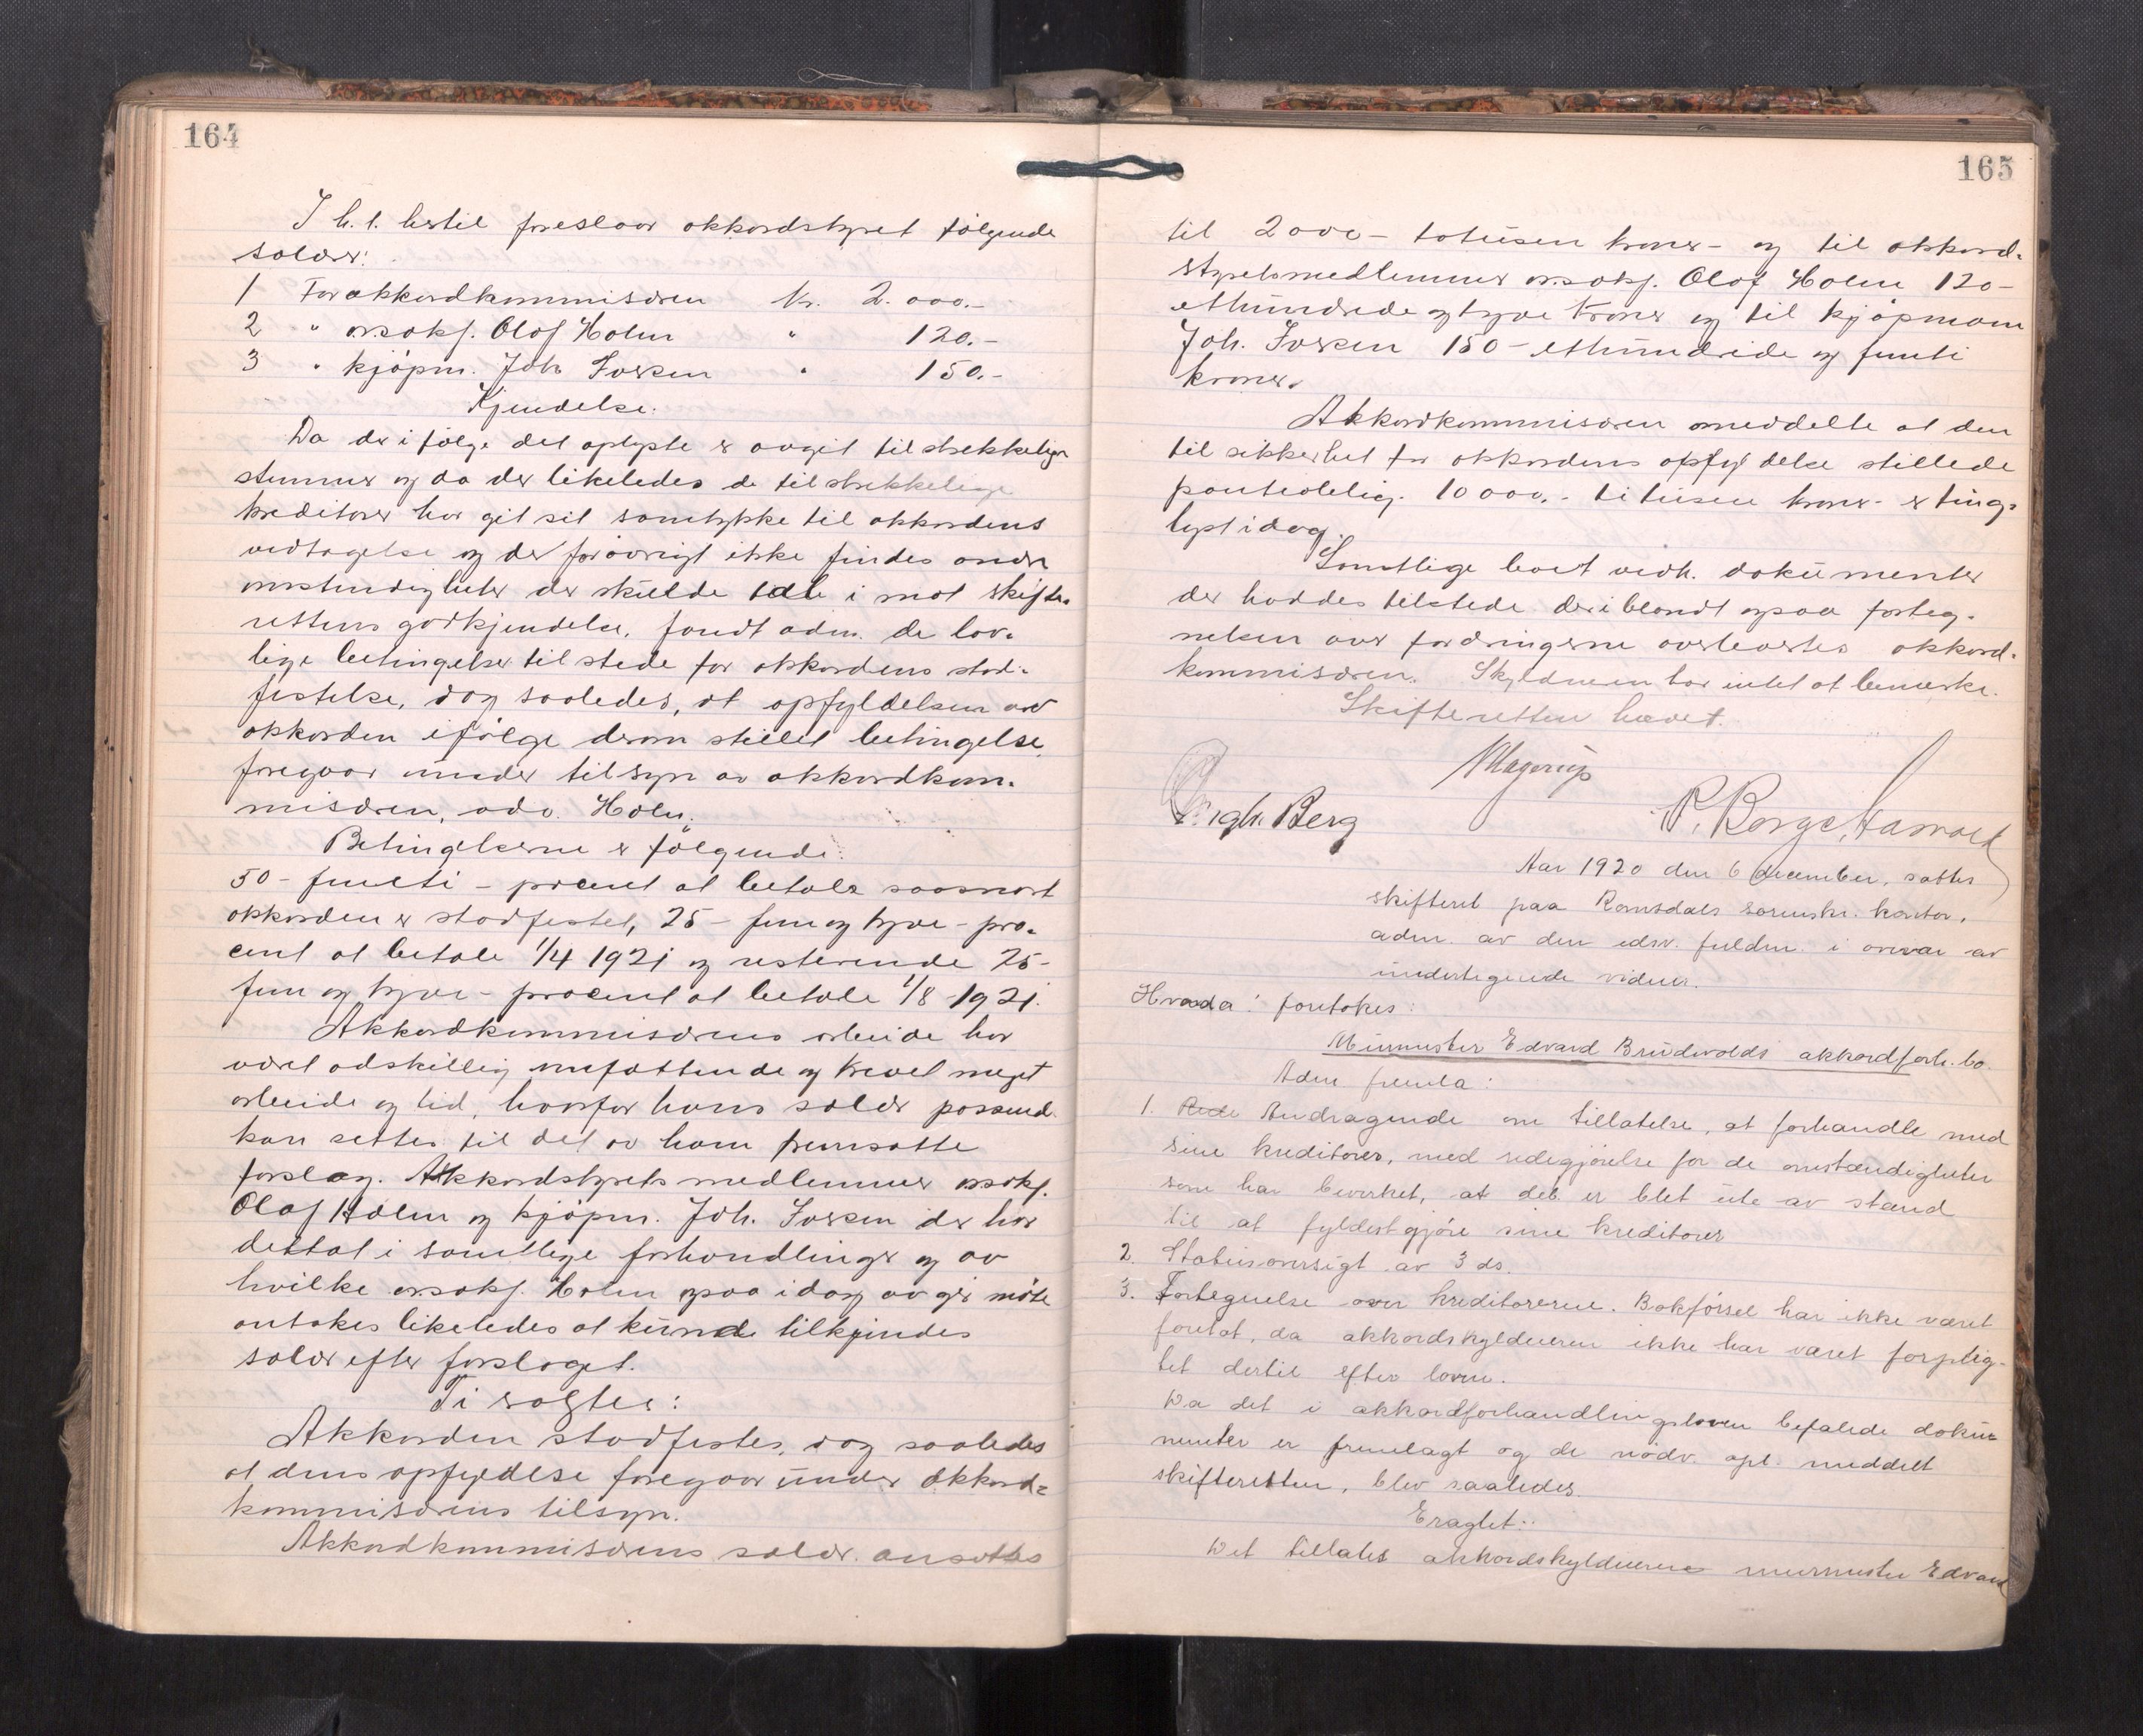 164
I h. t. hertil foreslaar akkordstyret følgende
salær:
1 For akkordkommisæren kr. 2.000.-
2 " o.r.sakf. Olaf Holm " 120.-
3 " kjøpm. Joh. Iversen " 150.-
Kjendelse.
Da der i følge det oplyste er avgit tilstrekkelige
stemmer og da der likeledes de tilstrekkelige
kreditorer har git sit samtykke til akkordens
vedtagelse og der forøvrigt ikke findes andre
omstendigheter der skulde tale i mot skifte-
rettens godkjendelse, fandt adm. de lov-
lige betingelser tilstede for akkordens stad-
festelse, dog saaledes, at opfyldelsen av
akkorden ifølge derom stillet betingelse
foregaar under tilsyn av akkordkom-
misæren, adv. Holm.
Betingelserne er følgende:
50 - femti - procent at betale saasnart
akkorden er stadfestet, 25 - fem og tyve - pro-
cent at betale 1/4 1921 og resterende 25 -
fem og tyve - procent at betale 1/8 1921.
Akkordkommisærens arbeide har
været adskillig omfattende og krevet meget
arbeide og tid, hvorfor hans salær passend
kan settes til det av ham fremsatte
forslag. Akkordstyrets medlemmer o.r.sakf.
Olaf Holm og kjøpm. Joh. Iversen der har
deltat i samtlige forhandlinger og av
hvilke o.r.sakf. Holm ogsaa idag avgir møte
antakes likeledes at kunde tilkjendes
salær efter forslaget.
Ti sagtes:
Akkorden stadfestes, dog saaledes
at dens opfyldelse foregaar under akkord-
kommisærens tilsyn.
Akkordkommisærens salær ansættes
165
til 2000 - totusen kroner - og til akkord-
styretsmedlemmer o.r.sakf. Olaf Holm 120 -
ethundrede og tyve kroner og til kjøpmann
Joh. Iversen 150 - ethundrede og femti
kroner.
Akkordkommisæren meddelte at den
til sikkerhet for akkordens opfyldelse stillede
panteobligs. 10 000.- titusen kroner - er ting-
lyst idag.
Samtlige boet vedk. dokumenter
der haddes tilstede deriblandt ogsaa forteg-
nelsen over fordringerne overleverte akkord-
kommisæren. Skyldneren har intet at bemerke.
Skifteretten hævet.
Magerup
Ingbr. Berg
P. Borge Hamvold
Aar 1920 den 6 december, sattes
skifteret paa Romsdals sorenskr. kontor,
adm. av den edsv. fuldm. i overvær av
undertegnede vidner.
Hvorda: foretokes:
Murmester Edvard Brudevolds akkordforh.bo.
Adm. fremla:
1. Andragende om tillatelse, at forhandle med
sine kreditorer, med redegjørelse for de omstændigheter
som har bevirket, at det er blet ute av stand
til at fyldestgjøre sine kreditorer
2. Statusoversigt av 3 ds.
3. Fortegnelse over kreditorerne. Bokførsel har ikke været
foretat, da akkordskyldneren ikke har været forplig-
tet dertil efter loven.
Da det i akkordforhandlingsloven befalede doku-
menter er fremlagt og de nødv. opl. meddelt
skifteretten, blev saaledes
Eragtet:
Det tillates akkordskyldneren murmester Edvard